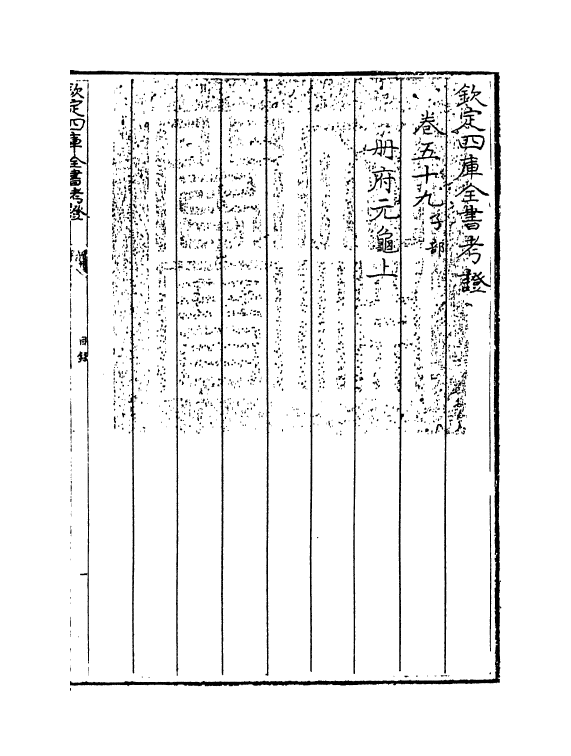 欽定四庫全書考證
卷五十九子部
册府元龜上
欽定四庫全書考證
目録
一